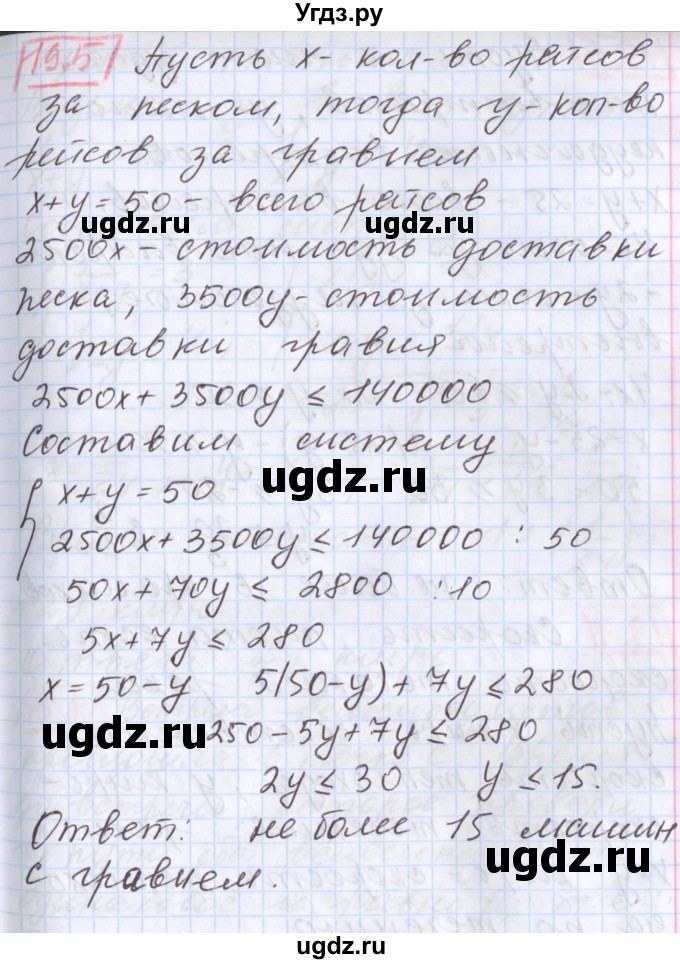 Угдз.ру
19.5 Пусть х - кол-во рейсов
за песком, тогда у - кол-во
рейсов за гравием
х+у=50 - всего рейсов
ugdz.ru ugdz.ru
2500х - стоимость доставки
песка, 3500у - стоимость
доставки гравия
2500х + 3500у ≤ 140000
Составим систему
ugdz.ru
{ х+у = 50
2500х + 3500у ≤ 140000 : 50
50х + 70у ≤ 2800 :10
5х + 7у ≤ 280
х = 50 - у 5(50-у) + 7у ≤ 280
ugdz.ru
250 - 5у + 7у ≤ 280
2у ≤ 30 у ≤ 15.
Ответ: не более 15 машин
ugdz.ru
с гравием.
ugdz.ru